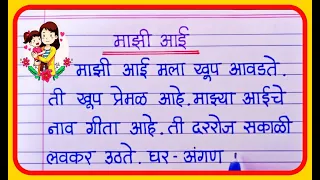 माझी आई
माझी आई मला खूप आवडते.
ती खूप प्रेमळ आहे. माझ्या आईचे
नाव गीता आहे. ती दररोज सकाळी
लवकर उठते. घर - अंगण